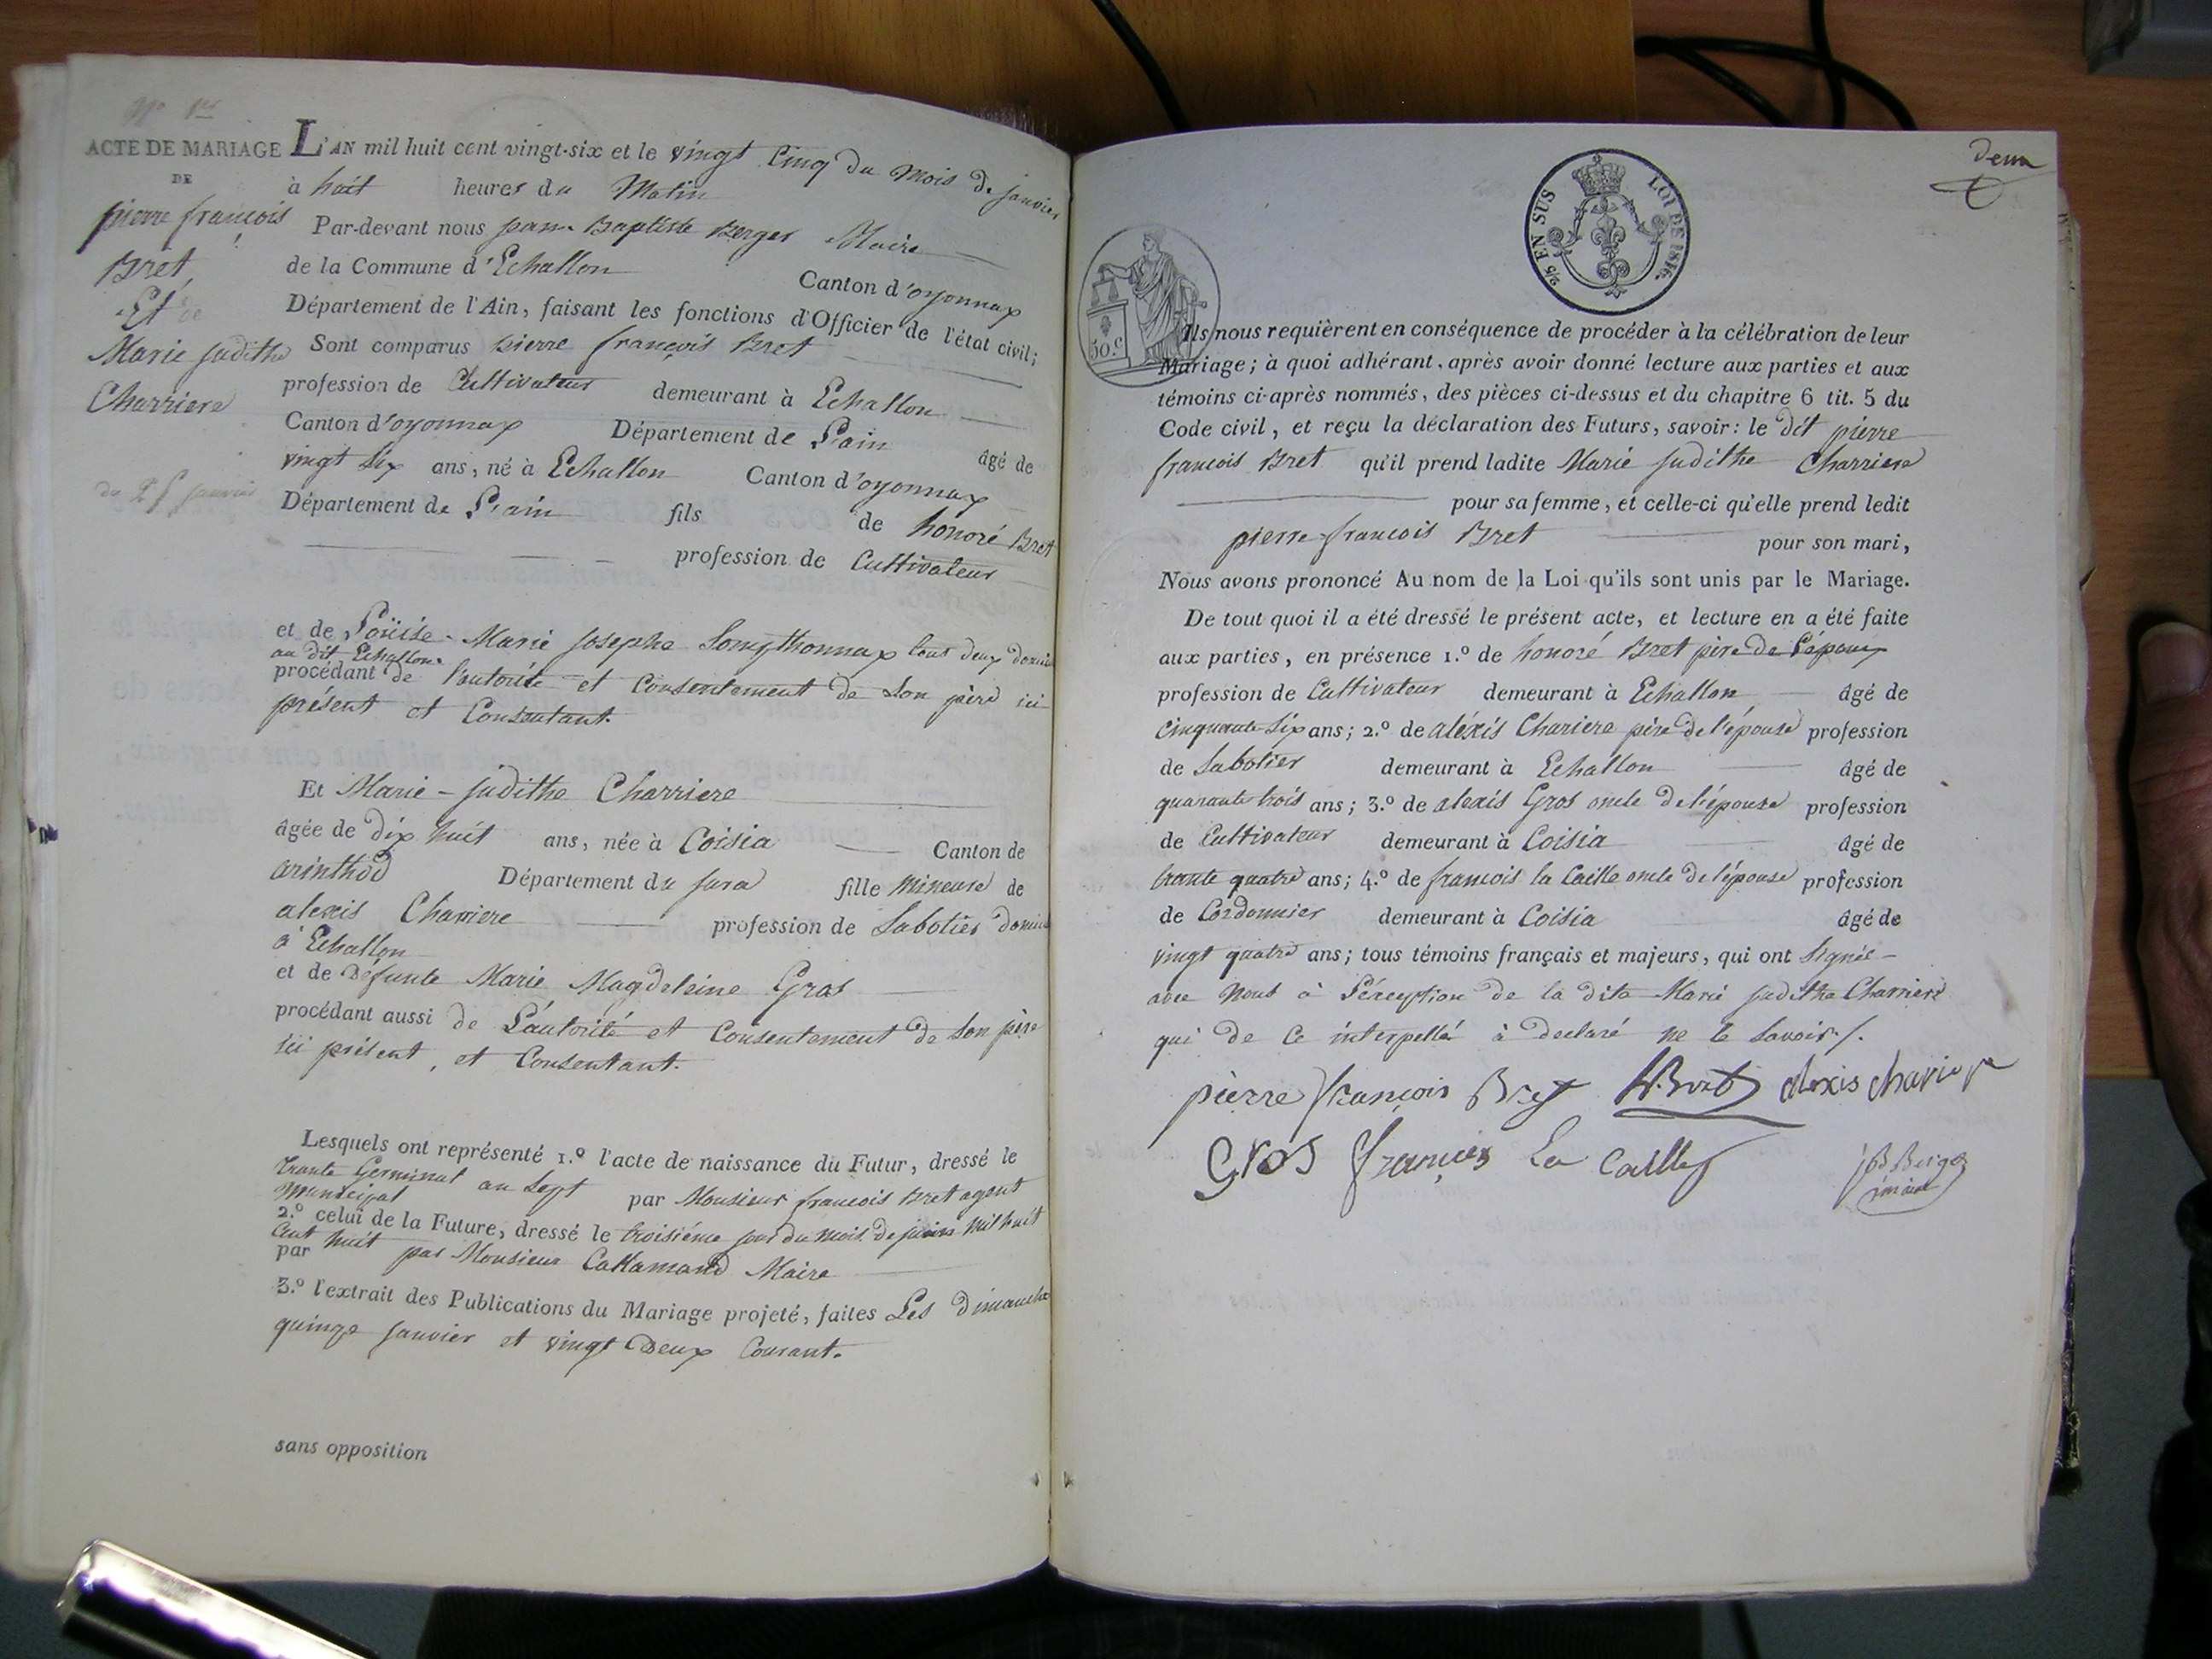 N° 1er
ACTE DE MARIAGE
DE
pierre françois
Bret
Et de
Marie judithe
Charriere
du 25 janvier
L'AN mil huit cent vingt-six et le vingt Cinq du Mois de janvier
à huit heures du Matin
Par-devant nous jean Baptiste Berger Maire
de la Commune d'Echallon Canton d'oyonnax
Département de l'Ain, faisant les fonctions d'Officier de l'état civil;
Sont comparus pierre françois Bret
profession de Cultivateur demeurant à Echallon
Canton d'oyonnax Département de L'ain âgé de
vingt Six ans, né à Echallon Canton d'oyonnax
Département de L'ain fils de honoré Bret
profession de Cultivateur
et de Loüise Marie josephe Songthonnax tout deux domi
au dit Echallon
procédant de l'autorité et Consentement de Son père ici
présent et Consentant.
Et Marie-judithe Charriere
âgée de dix huit ans, née à Coisia Canton de
arinthod Département du jura fille Mineure de
alexis Charriere profession de Sabotier domicil
à Echallon
et de Défunte Marie Magdeleine Gros
procédant aussi de L'autorité et Consentement de Son père
ici présent, et Consentant.
Lesquels ont représenté 1.º l'acte de naissance du Futur, dressé le
trante Germinal an Sept par Monsieur françois Bret agent
Municipal
2.º celui de la Future, dressé le troisiéme jour du mois de juin Mil huit
Cent huit par Monsieur Callamand Maire
par
3.º l'extrait des Publications du Mariage projeté, faites Les dimanche
quinze janvier et vingt Deux Courant.
sans opposition
deux
25 EN SUS LOI DE 1816.
50.c
Ils nous requièrent en conséquence de procéder à la célébration de leur
Mariage; à quoi adhérant, après avoir donné lecture aux parties et aux
témoins ci-après nommés, des pièces ci-dessus et du chapitre 6 tit. 5 du
Code civil, et reçu la déclaration des Futurs, savoir: le dit pierre
francois Bret qu'il prend ladite Marie judithe Charriere
pour sa femme, et celle-ci qu'elle prend ledit
pierre-francois Bret pour son mari,
Nous avons prononcé Au nom de la Loi qu'ils sont unis par le Mariage.
De tout quoi il a été dressé le présent acte, et lecture en a été faite
aux parties, en présence 1.º de honoré Bret père de l'époux
profession de Cultivateur demeurant à Echallon âgé de
cinquante-Six ans; 2.º de aléxis Chariere père de l'épouse profession
de Sabotier demeurant à Echallon âgé de
quarante trois ans; 3.º de alexis Gros oncle de l'épouse profession
de Cultivateur demeurant à Coisia âgé de
trante quatre ans; 4.º de francois la Caille oncle de l'épouse profession
de Cordonnier demeurant à Coisia âgé de
vingt quatre ans; tous témoins français et majeurs, qui ont Signés
avec Nous à l'éxception de la dite Marie judithe Charriere
qui de Ce interpellé à declaré ne le Savoir./.
pierre françois Bret H. Bret alexis chariere
gros françois La Caille
JB Berger
maire